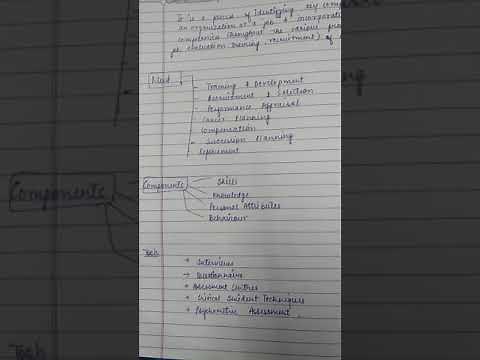 It is a process of identifying key comp
an organization or a job & incorporat
competencies throughout the various pro
job evaluation, training, recruitment) of
Need
- Training & Development
- Recruitment & Selection
- Performance Appraisal
Career Planning
Compensation
- Succession Planning
Components
Skills
Knowledge
Personal Attributes
Behaviour
Tools
→ Interviews
→ Questionnaire
→ Assessment Centres
→ Critical Incident Techniques
→ Psychometric Assessment.
Components
Tools